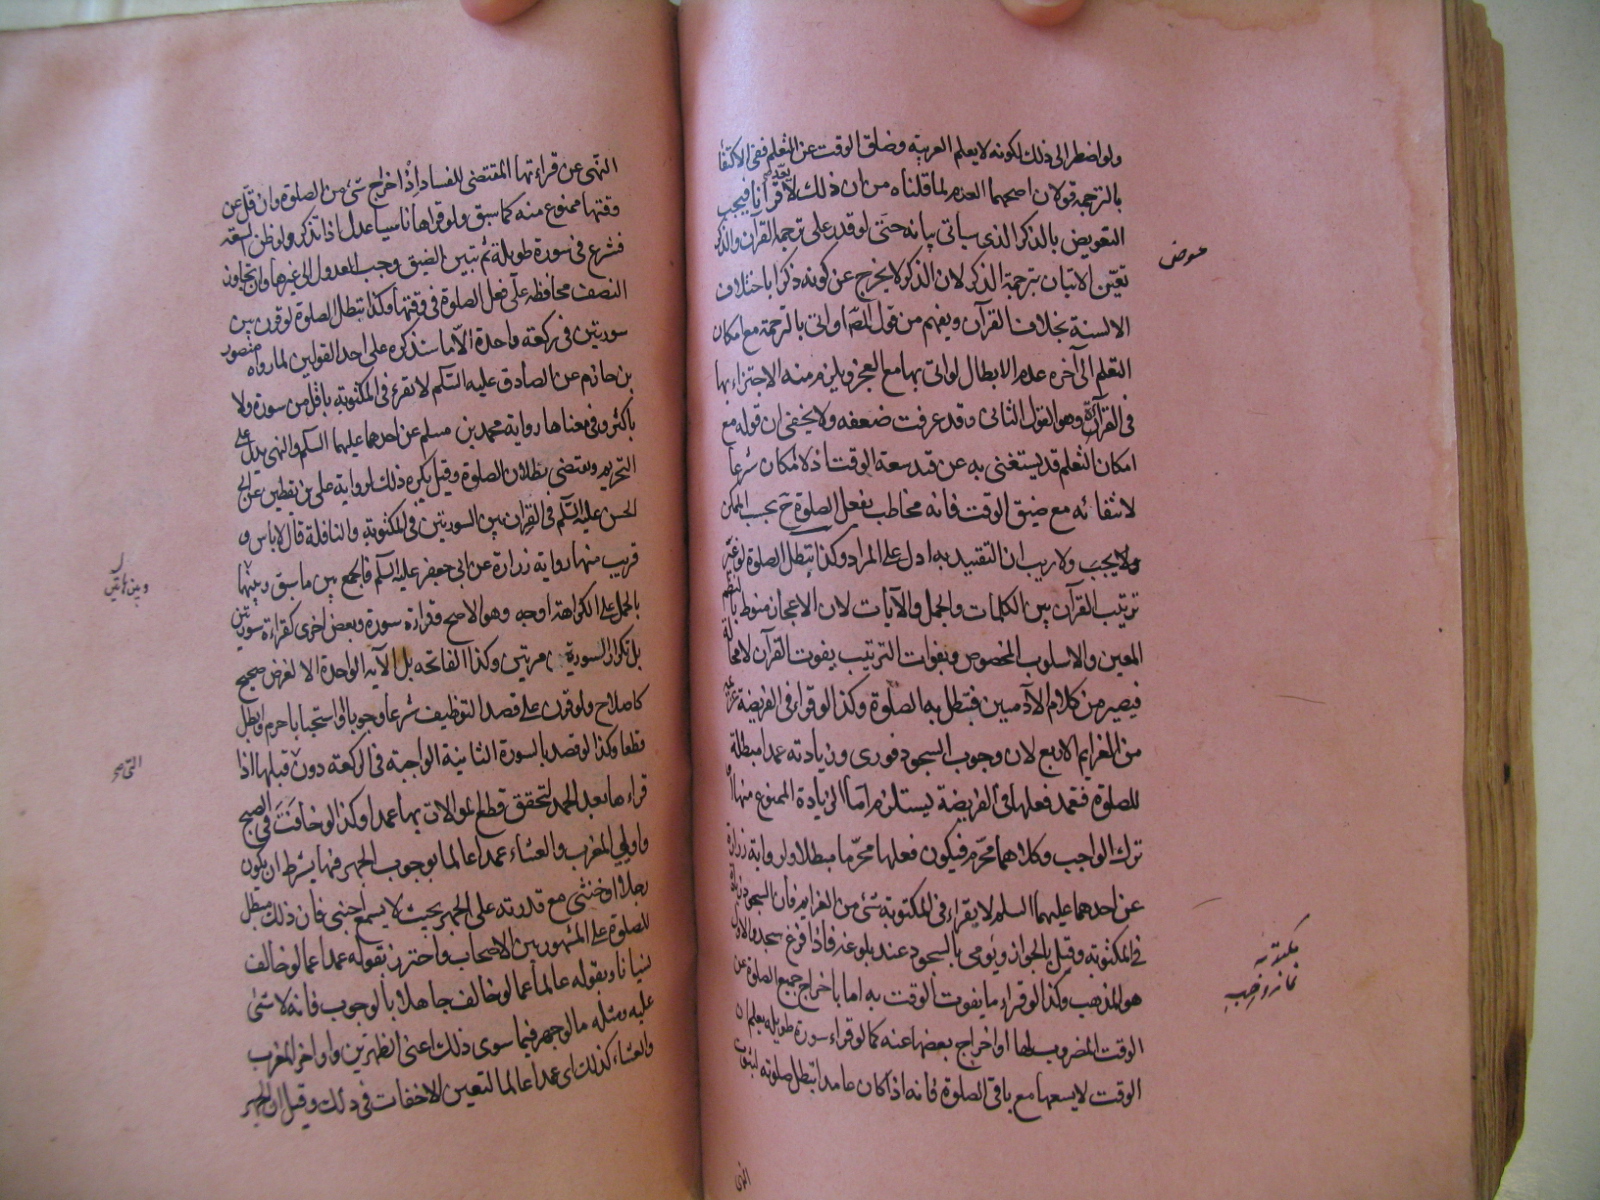 ولو اضطر الى ذلك لكونه لا يعلم العربية وضاق الوقت عن التعلم ففى الاكتفا
بالترجمة قولان اصحهما العدم لما قلناه من ان ذلك لا يعد قرانا فيجب
التعويض بالذكر الذى سياتى بيانه حتى لو قدر على ترجمة القرآن والذكر
تعين الاتيان بترجمة الذكر لان الذكر لا يخرج عن كونه ذكرا باختلاف
الالسنة بخلاف القرآن ويفهم من قول المصّ او اتى بالترجمة مع امكان
التعلم الى آخره عدم الابطال لو اتى بها مع العجز ويلزم منه الاجتزاء بها
فى القرآءة وهو القول الثانى وقد عرفت ضعفه ولا يخفى ان قوله مع
امكان التعلم قد يستغنى به عن قيد سعة الوقت اذ لا امكان شرعا
لانتفائه مع ضيق الوقت فانه مخاطب بفعل الصلوة ح بحسب الممكن
ولا يجب ولا ريب ان التقييد به ادل على المراد وكذا تبطل الصلوة لو غيّر
ترتيب القرآن بين الكلمات والجمل والآيات لان الاعجاز منوط بالنظم
المعين والاسلوب المخصوص وبفوات الترتيب يفوت القرآن لا محالة
فيصير من كلام الآدميين فتبطل به الصلوة وكذا لو قراء فى الفريضة عزيمة
من العزايم الاربع لان وجوب السجود فورى وزيادته عمدا مبطلة
للصلوة فتعمد فعلها فى الفريضة يستلزم اما الزيادة الممنوع منها او
ترك الواجب وكلاهما محرّم فيكون فعلها محرّما مبطلا ولرواية زرارة
عن احدهما عليهما السلم لا يقراء فى المكتوبة شئ من العزايم فان السجود زيادة
فى المكتوبة وقيل بالجواز ويؤمى بالسجود عند بلوغه فاذا فرغ سجد والاول
هو المذهب وكذا لو قراء ما يفوت الوقت به اما باخراج جميع الصلوة عن
الوقت المضروب لها او اخراج بعضها عنه كما لو قراء سورة طويله يعلم ان
الوقت لا يسعها مع باقى الصلوة فانه اذا كان عامدا تبطل صلوته لثبوت
النهى
عوض
مكتوبه
نماز واجب
النهى عن قراءتها المقتضى للفساد اذ اخراج شئ من الصلوة وان قل عن
وقتها ممنوع منه كما سبق ولو قراها ناسيا عدل اذا تذكر ولو ظن السعة
فشرع فى سورة طويلة ثم تبين الضيق وجب العدول الى غيرها وان تجاوز
النصف محافظة على فعل الصلوة فى وقتها وكذا تبطل الصلوة لو قرن بين
سورتين فى ركعة واحدة الّا ما سنذكره على احد القولين لما رواه منصور
بن حازم عن الصادق عليه السّلم لا تقرء فى المكتوبة باقل من سورة ولا
باكثر وفى معناها رواية محمد بن مسلم عن احدهما عليهما السلم والنهى يدل على
التحريم ويقتضى بطلان الصلوة وقيل يكره ذلك لرواية على بن يقطين عن ابى
الحسن عليه السّلم فى القران بين السورتين فى المكتوبة والنافلة قال لا باس و
قريب منها رواية زرارة عن ابى جعفر عليه السلم فالجمع بين ما سبق وبينها
بالحمل على الكراهة اوجه وهو الاصح وقراءة سورة وبعض اخرى كقراءة سورتين
بل تكرار السورة مرتين وكذا الفاتحه بل الآية الواحدة الا لغرض صحيح
كاصلاح ولو قرن على قصد التوظيف شرعا وجوبا او استحبابا حرم وابطل
قطعا وكذا لو قصد بالسورة الثانية الواجبة فى الركعة دون قبلها اذا
قراءها بعد الحمد لتحقق قطع الموالات بها عمدا وكذا لو خافت فى الصبح
واوليى المغرب والعشاء عمدا عالما بوجوب الجهر فيها بشرط ان يكون
رجلا او خنثى مع قدرته على الجهر بحيث لا يسمع اجنبى فان ذلك مبطل
للصلوة على المشهور بين الاصحاب واحترز بقوله عمدا عما لو خالف
نسيانا وبقوله عالما عما لو خالف جاهلا بالوجوب فانه لا شئ
عليه ومثله ما لو جهر فيما سوى ذلك اعنى الظهرين واواخر المغرب
والعشاء كذلك اى عمدا عالما لتعين الاخفات فى ذلك وقيل ان الجهر
وبين هاتين
التى